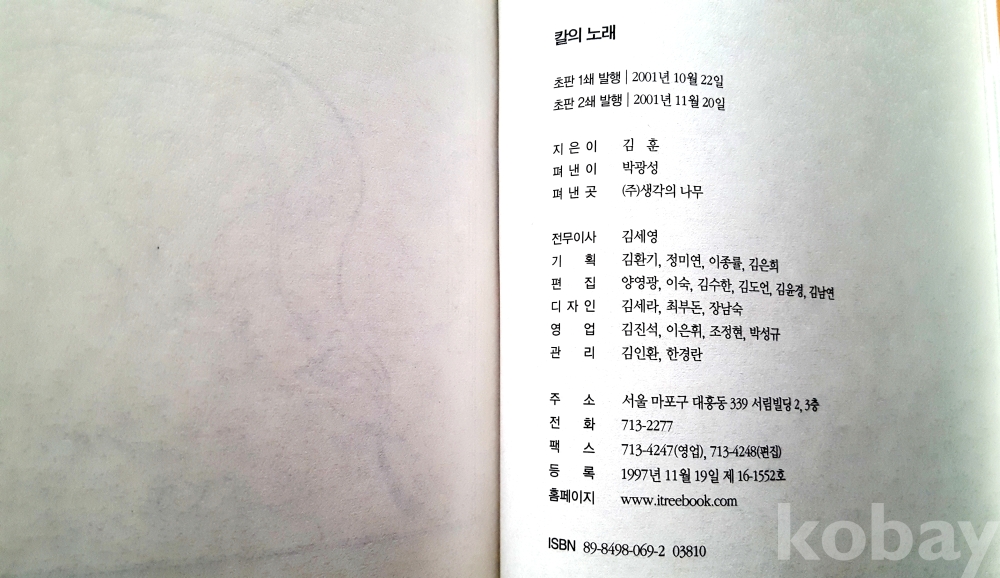 칼의 노래
초판 1쇄 발행 | 2001년 10월 22일
초판 2쇄 발행 | 2001년 11월 20일
지 은 이 김 훈
펴 낸 이 박광성
펴 낸 곳 (주)생각의 나무
전무이사 김세영
기 획 김환기, 정미연, 이종률, 김은희
편 집 양영광, 이숙, 김수한, 김도언, 김윤경, 김남연
디 자 인 김세라, 최부돈, 장남숙
영 업 김진석, 이은휘, 조정현, 박성규
관 리 김인환, 한경란
주 소 서울 마포구 대흥동 339 서림빌딩 2, 3층
전 화 713-2277
팩 스 713-4247(영업), 713-4248(편집)
등 록 1997년 11월 19일 제 16-1552호
홈페이지 www.itreebook.com
ISBN 89-8498-069-2 03810
kobay